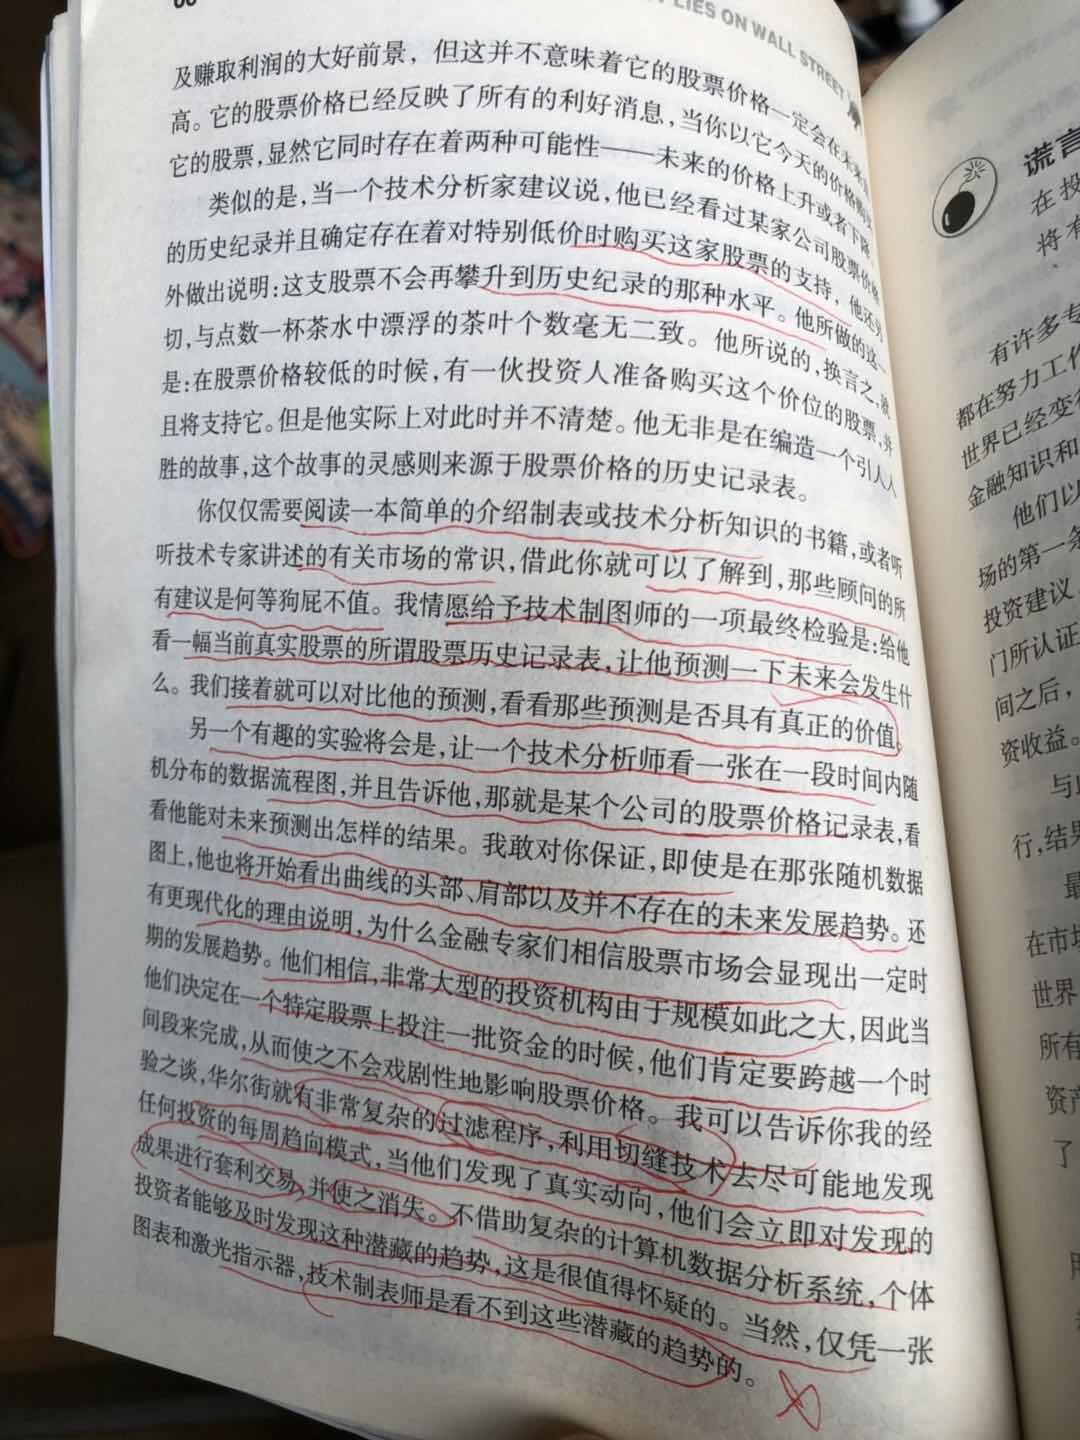 LIES ON WALL STREET
及赚取利润的大好前景，但这并不意味着它的股票价格一定会在未来
高。它的股票价格已经反映了所有的利好消息，当你以它今天的价格购买
它的股票，显然它同时存在着两种可能性——未来的价格上升或者下降。
类似的是，当一个技术分析家建议说，他已经看过某家公司股票价格
的历史纪录并且确定存在着对特别低价时购买这家股票的支持，他还另
外做出说明：这支股票不会再攀升到历史纪录的那种水平。他所做的这一
切，与点数一杯茶水中漂浮的茶叶个数毫无二致。他所说的，换言之，就
是：在股票价格较低的时候，有一伙投资人准备购买这个价位的股票，并
且将支持它。但是他实际上对此时并不清楚。他无非是在编造一个引人入
胜的故事，这个故事的灵感则来源于股票价格的历史记录表。
你仅仅需要阅读一本简单的介绍制表或技术分析知识的书籍，或者听
听技术专家讲述的有关市场的常识，借此你就可以了解到，那些顾问的所
有建议是何等狗屁不值。我情愿给予技术制图师的一项最终检验是：给他
看一幅当前真实股票的所谓股票历史记录表，让他预测一下未来会发生什
么。我们接着就可以对比他的预测，看看那些预测是否具有真正的价值。
另一个有趣的实验将会是，让一个技术分析师看一张在一段时间内随
机分布的数据流程图，并且告诉他，那就是某个公司的股票价格记录表，看
看他能对未来预测出怎样的结果。我敢对你保证，即使是在那张随机数据
图上，他也将开始看出曲线的头部、肩部以及并不存在的未来发展趋势。还
有更现代化的理由说明，为什么金融专家们相信股票市场会显现出一定时
期的发展趋势。他们相信，非常大型的投资机构由于规模如此之大，因此当
他们决定在一个特定股票上投注一批资金的时候，他们肯定要跨越一个时
间段来完成，从而使之不会戏剧性地影响股票价格。我可以告诉你我的经
验之谈，华尔街就有非常复杂的过滤程序，利用切缝技术去尽可能地发现
任何投资的每周趋向模式，当他们发现了真实动向，他们会立即对发现的
成果进行套利交易，并使之消失。不借助复杂的计算机数据分析系统，个体
投资者能够及时发现这种潜藏的趋势，这是很值得怀疑的。当然，仅凭一张
图表和激光指示器，技术制表师是看不到这些潜藏的趋势的。
谎言
在投
将有
有许多专
都在努力工作
世界已经变得
金融知识和
他们以
场的第一条
投资建议
门所认证
间之后，
资收益。
与
行，结果
最
在市场
世界
所有
资产
了